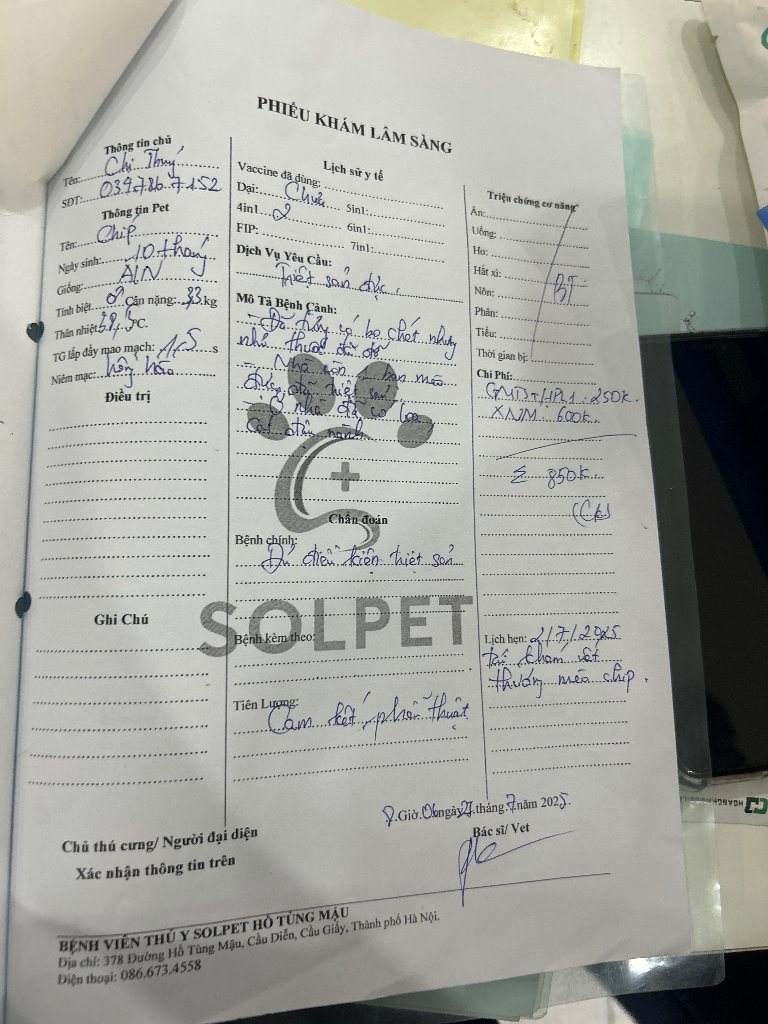 PHIẾU KHÁM LÂM SÀNG
Thông tin chủ
Tên: Chị Thuý
SĐT: 039.786.7152
Thông tin Pet
Tên: Chip
Ngày sinh: 10 tháng
Giống: ALN
Tính biệt: ♂ Cân nặng: 3,3 kg
Thân nhiệt 38,5°C.
TG lấp đầy mao mạch: 1,5 s
Niêm mạc: hồng hào
Điều trị
Ghi Chú
Lịch sử y tế
Vaccine đã dùng:
Dại: Chưa 5in1:
4in1 2 6in1:
FIP: 7in1:
Dịch Vụ Yêu Cầu:
Triệt sản đực.
Mô Tả Bệnh Cảnh:
- Đã từng có bọ chét nhưng
nhỏ thuốc đã đỡ
- Nhà còn 1 bạn mèo
đực đã triệt sản
- Ở nhà đã có loa
cát đậu nành
Chẩn đoán
Bệnh chính:
Đủ điều kiện triệt sản
SOLPET
Bệnh kèm theo:
Tiên Lượng:
Cam kết phẫu thuật
Triệu chứng cơ năng
Ăn:
Uống:
Ho:
Hắt xì:
Nôn: BT
Phân:
Tiểu:
Thời gian bị:
Chi Phí:
GMD+HPL1: 250k.
XNM: 600k.
Σ 850k.
(CK)
Lịch hẹn: 2/7/2025
tái khám vết
thương mèo chip.
8.Giờ.06ngày27.tháng.7năm 2025.
Bác sĩ/ Vet
Chủ thú cưng/ Người đại diện
Xác nhận thông tin trên
BỆNH VIỆN THÚ Y SOLPET HỒ TÙNG MẬU
Địa chỉ: 378 Đường Hồ Tùng Mậu, Cầu Diễn, Cầu Giấy, Thành phố Hà Nội.
Điện thoại: 086.673.4558